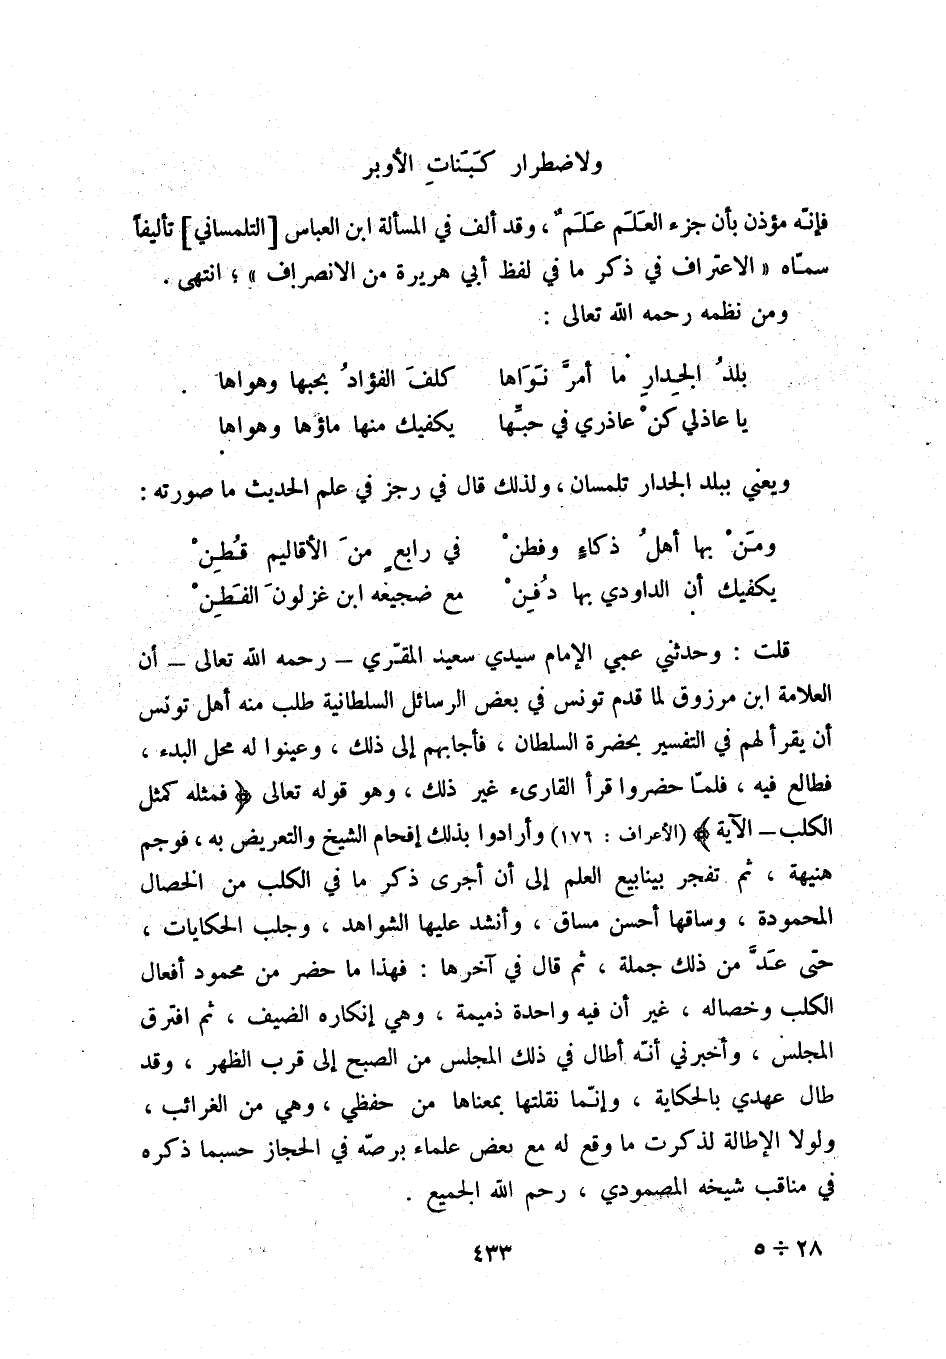 ولاضطرار كَبَنَاتِ الأوبر
فإنّه مؤذن بأن جزء العَلَم عَلَمٌ ، وقد ألف في المسألة ابن العباس [التلمساني] تأليفاً
سمّاه « الاعتراف في ذكر ما في لفظ أبي هريرة من الانصراف » ؛ انتهى .
ومن نظمه رحمه الله تعالى :
بلدُ الجدارِ ما أمرَّ نَوَاها كلفَ الفؤادُ بحبها وهواها
يا عاذلي كنْ عاذري في حبّها يكفيك منها ماؤها وهواها
ويعني ببلد الجدار تلمسان ، ولذلك قال في رجز في علم الحديث ما صورته :
ومَنْ بها أهلُ ذكاءٍ وفطنْ في رابعٍ منَ الأقاليم قُطِنْ
يكفيك أن الداودي بها دُفِنْ مع ضجيعه ابن غزلونَ الفَطِنْ
قلت : وحدثني عمي الإمام سيدي سعيد المقّري – رحمه الله تعالى – أن
العلامة ابن مرزوق لما قدم تونس في بعض الرسائل السلطانية طلب منه أهل تونس
أن يقرأ لهم في التفسير بحضرة السلطان ، فأجابهم إلى ذلك ، وعينوا له محل البدء ،
فطالع فيه ، فلمّا حضروا قرأ القارىء غير ذلك ، وهو قوله تعالى ﴿ فمثله كمثل
الكلب – الآية ﴾ (الأعراف : ١٧٦) وأرادوا بذلك إفحام الشيخ والتعريض به ، فوجم
هنيهة ، ثم تفجر بينابيع العلم إلى أن أجرى ذكر ما في الكلب من الخصال
المحمودة ، وساقها أحسن مساق ، وأنشد عليها الشواهد ، وجلب الحكايات ،
حتى عَدَّ من ذلك جملة ، ثم قال في آخرها : فهذا ما حضر من محمود أفعال
الكلب وخصاله ، غير أن فيه واحدة ذميمة ، وهي إنكاره الضيف ، ثم افترق
المجلس ، وأخبرني أنّه أطال في ذلك المجلس من الصبح إلى قرب الظهر ، وقد
طال عهدي بالحكاية ، وإنّما نقلتها بمعناها من حفظي ، وهي من الغرائب ،
ولولا الإطالة لذكرت ما وقع له مع بعض علماء برصّه في الحجاز حسبما ذكره
في مناقب شيخه المصمودي ، رحم الله الجميع .
٢٨ ÷ ٥ ٤٣٣